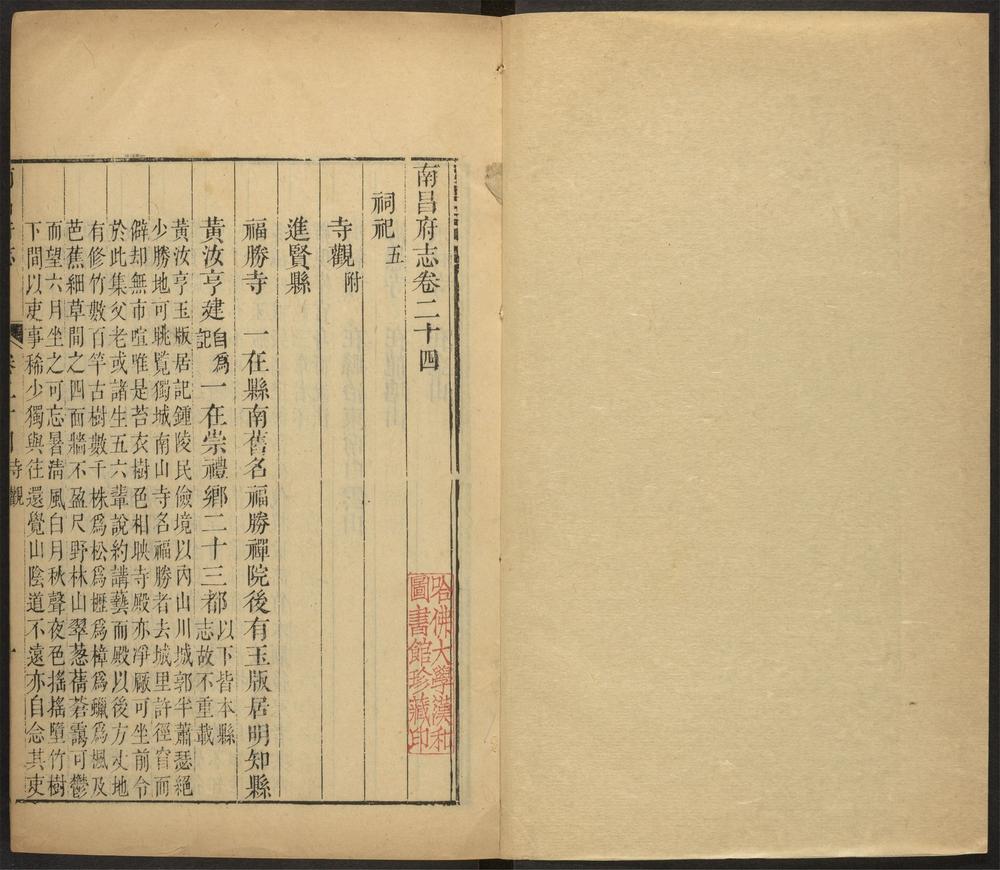 南昌府志卷二十四
祠祀五
寺觀附
進賢縣
福勝寺 一在縣南舊名福勝禪院後有玉版居明知縣
黃汝亨建自爲記一在崇禮鄉二十三都以下皆本縣志故不重載
黃汝亨玉版居記鍾陵民儉境以內山川城郭半蕭瑟絕
少勝地可眺覽獨城南山寺名福勝者去城里許徑窅而
僻却無市喧唯是苔衣樹色相映寺殿亦淨厰可坐前令
於此集父老或諸生五六輩說約講藝而殿以後方丈地
有修竹數百竿古樹數千株爲松爲櫪爲樟爲蠟爲楓及
芭蕉細草間之四面牆不盈尺野林山翠葱蒨蒼靄可鬱
而望六月坐之可忘暑淸風白月秋聲夜色搖搖墮竹樹
下間以吏事稀少獨與往還覺山陰道不遠亦自念其吏
寺觀
哈佛大學漢和
圖書館珍藏印